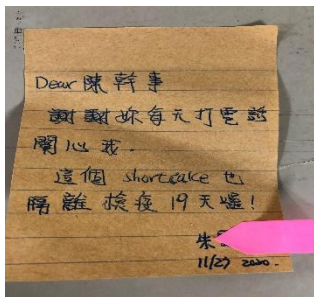 Dear 陳幹事
謝謝妳每天打電話
關心我.
這個 shortcake 也
隔離檢疫 19天囉!
朱
11/27 2020.